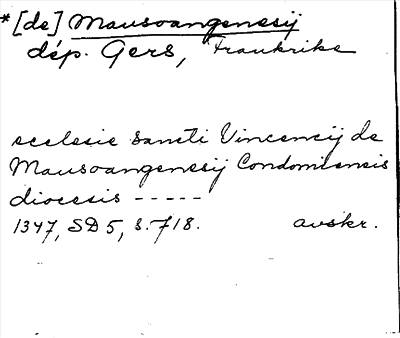 *[de] Mausoangenesij
dép. Gers, Frankrike
ecclesie Sancti Vincencij de
Mausoangenesij Condomiensis
diocesis -----
1347, SD 5, s. 718. avskr.